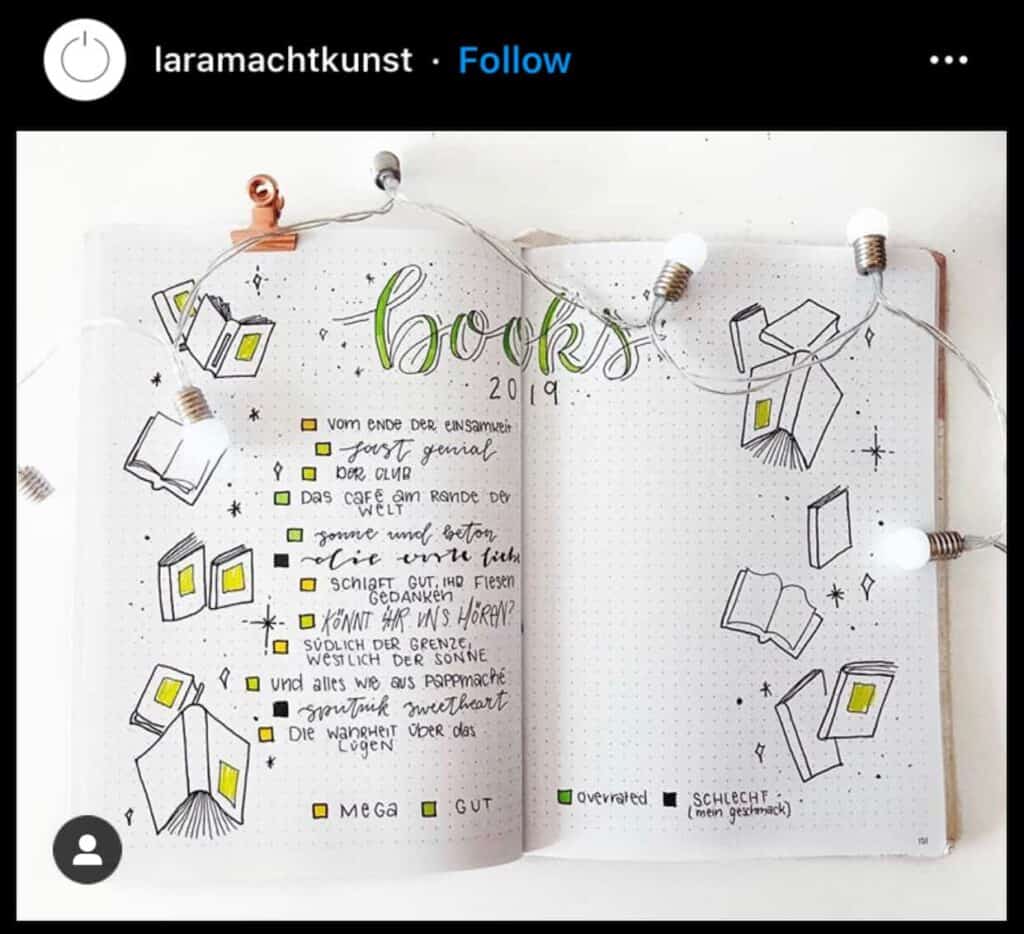 laramachtkunst · Follow
books
2019
VOM ENDE DER EINSAMKEIT
fast genial
DER CLUB
DAS CAFÉ AM RANDE DER
WELT
sonne und beton
die erste liebe
SCHLAFT GUT, IHR FIESEN
GEDANKEN
KÖNNT IHR UNS HÖREN?
SÜDLICH DER GRENZE,
WESTLICH DER SONNE
und alles wie aus Pappmaché
sputnik sweetheart
DIE WAHRHEIT ÜBER DAS
LÜGEN
MEGA GUT overrated SCHLECHT
(mein geschmack)
151